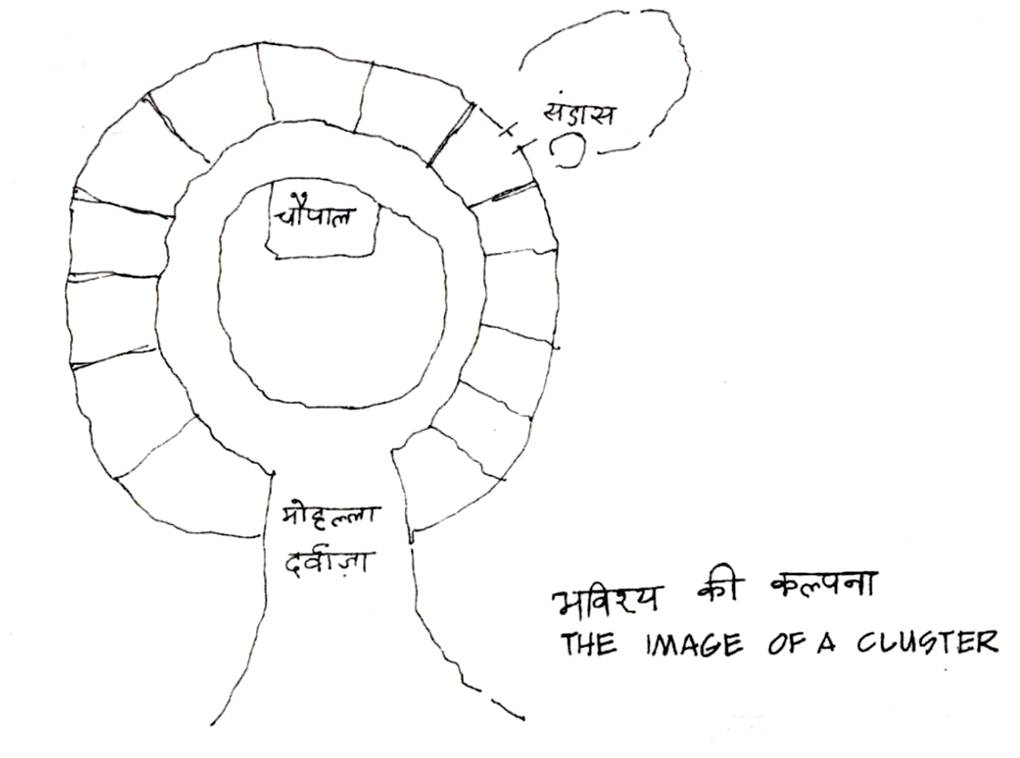 संडास
चौपाल
मोहल्ला
दर्वाज़ा
भविश्य की कल्पना
THE IMAGE OF A CLUSTER